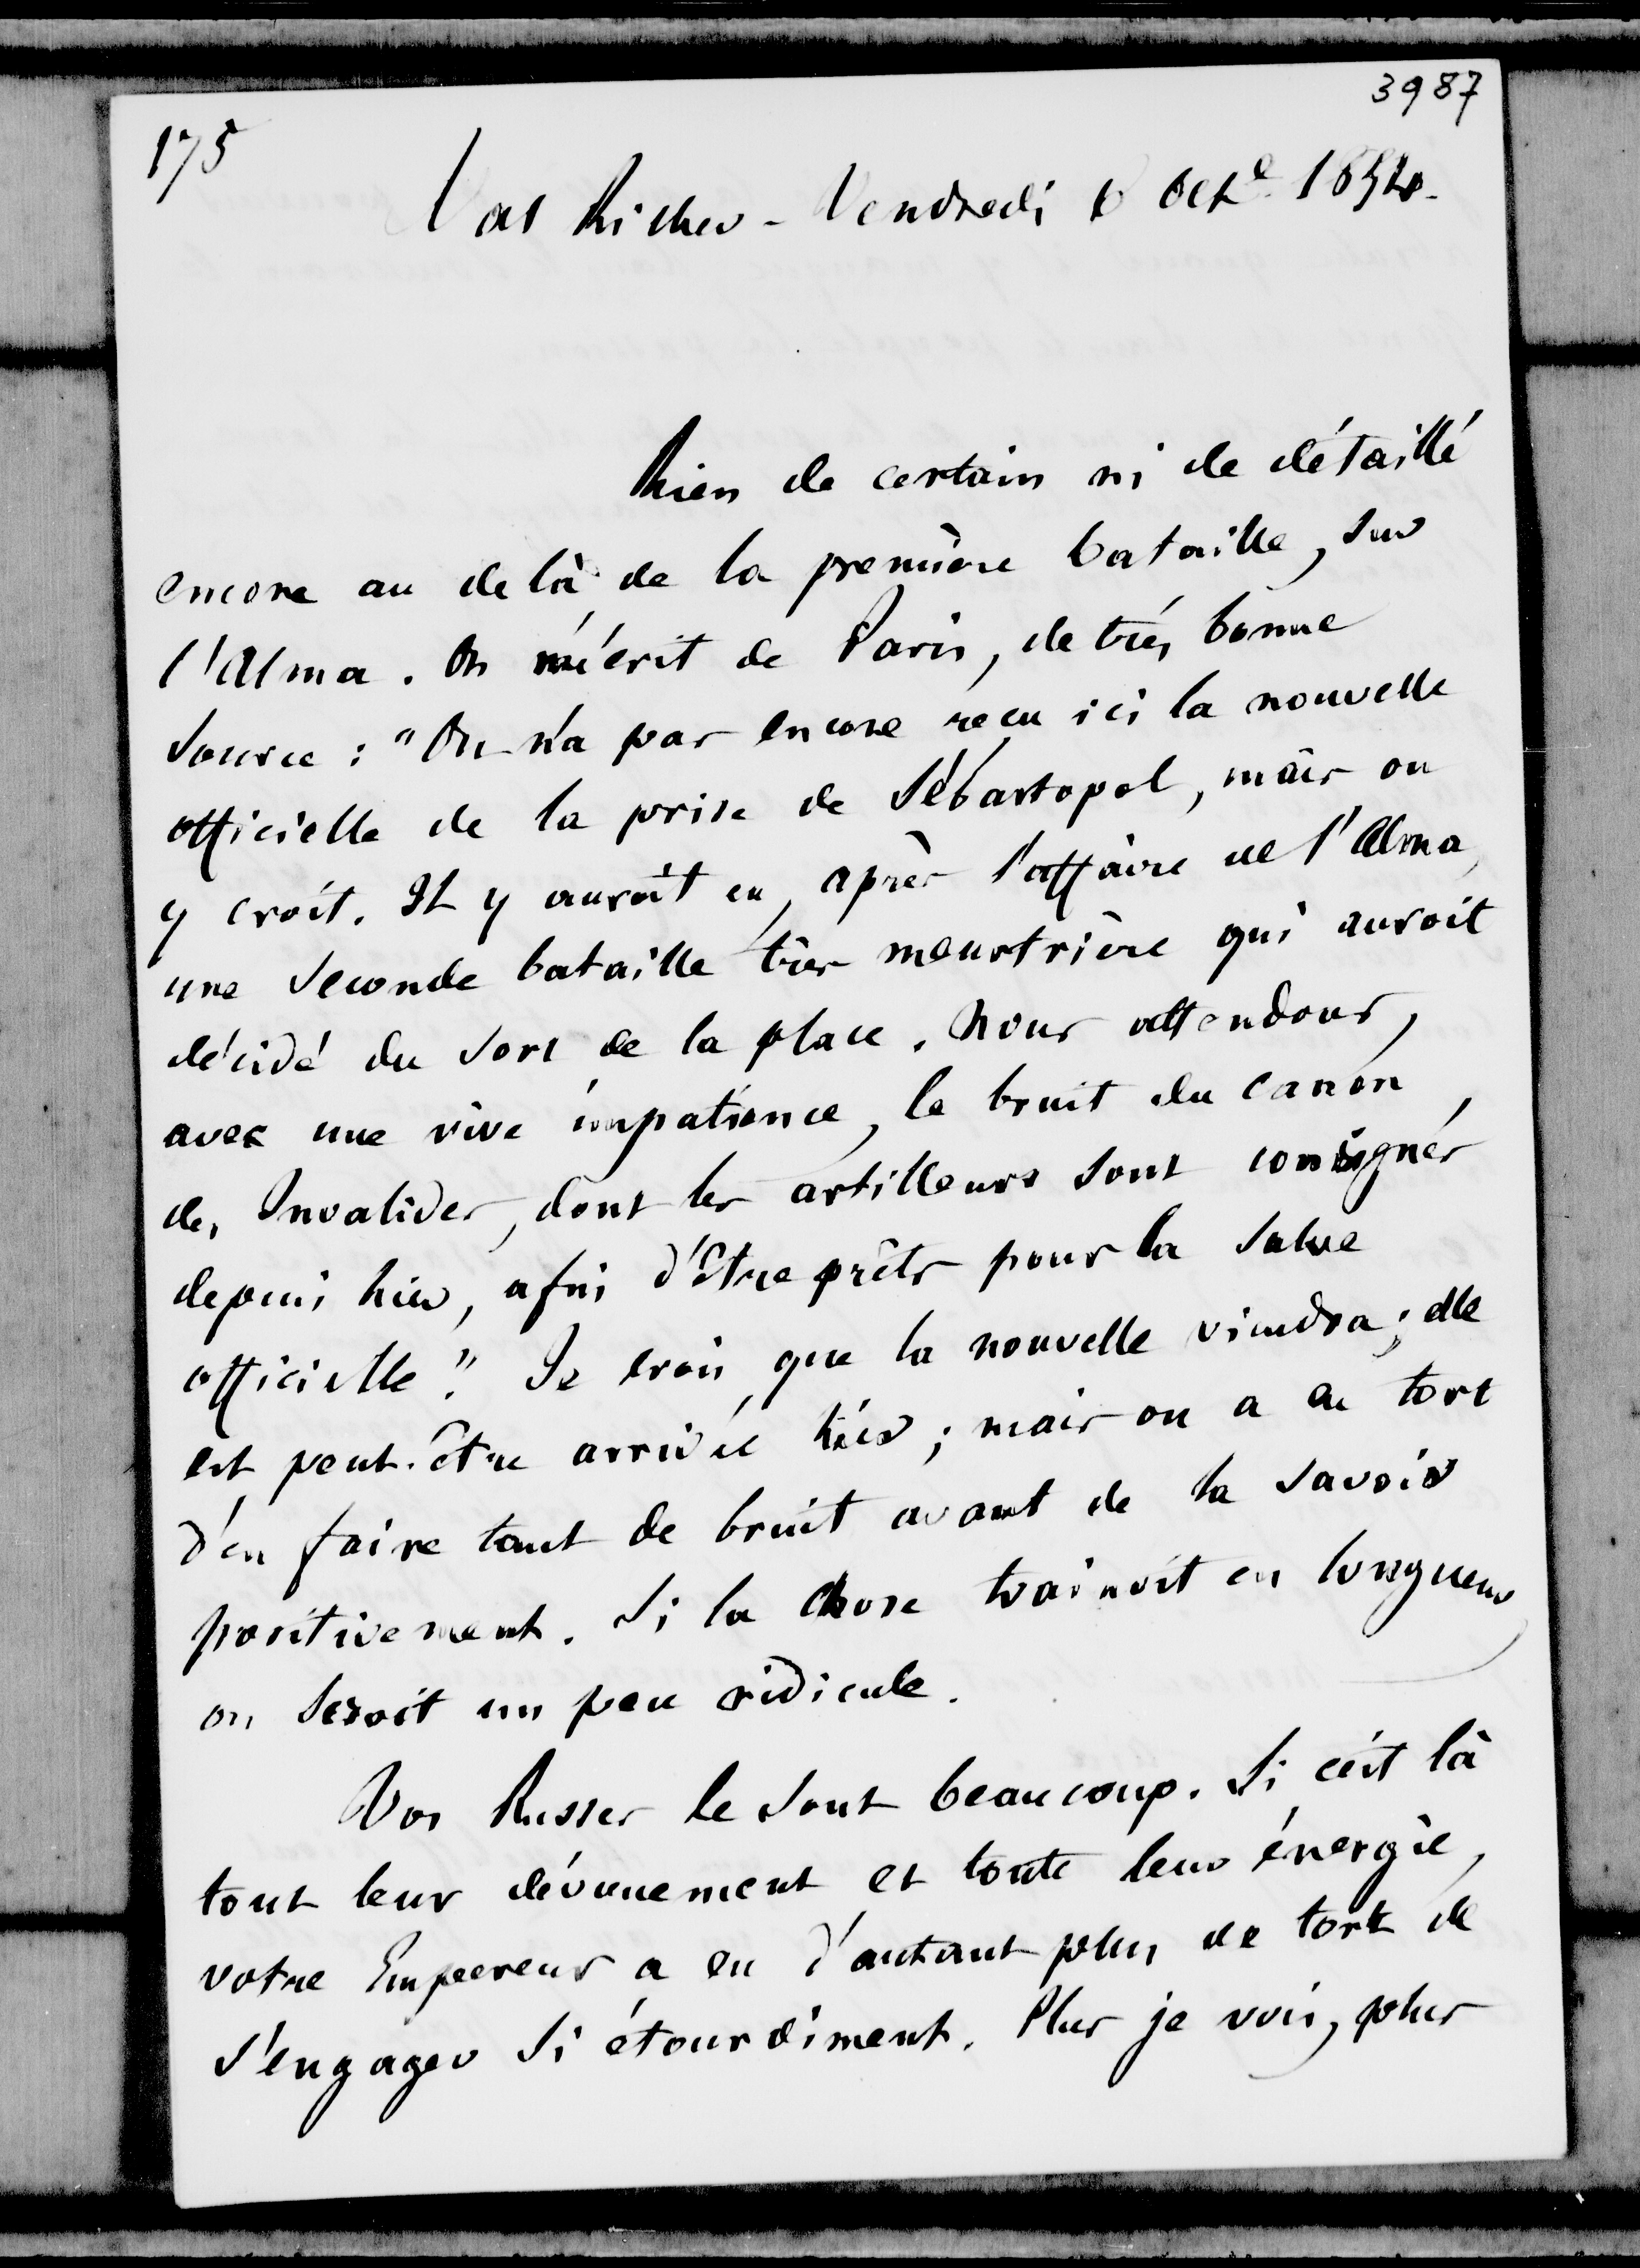 3987
175
Val Richer - Vendredi 6 Octe 1854.
Rien de certain ni de détaillé
encore au delà de la première bataille, sur
l'Alma. On m'écrit de Paris, de très bonne
source : "On n'a pas encore reçu ici la nouvelle
officielle de la prise de Sébastopol, mais on
y croit. Il y auroit eu, après l'affaire de l'Alma,
une seconde bataille très meurtrière qui auroit
décidé du sort de la place. Nous attendons,
avec une vive impatience, le bruit du canon
des Invalides, dont les artilleurs sont consignés
depuis hier, afin d'être prêts pour la salve
officielle." Je crois que la nouvelle viendra ; elle
est peut-être arrivée hier ; mais on a eu tort
d'en faire tant de bruit avant de la savoir
positivement. Si la chose trainoit en longueur,
on seroit un peu ridicule.
Vos Russes le sont beaucoup. Si c'est là
tout leur dévouement et toute leur énergie,
votre Empereur a eu d'autant plus de tort de
s'engager si étourdiment. Plus je vois, plus